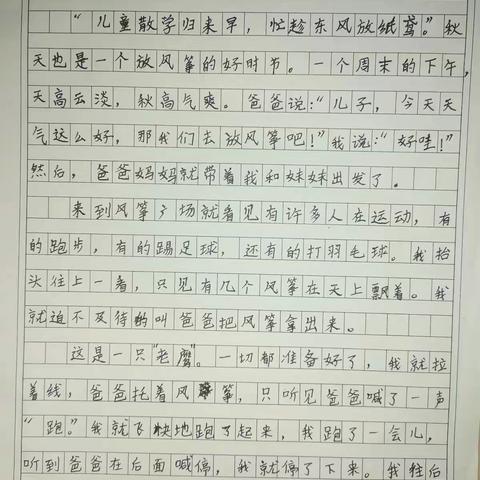 “儿童散学归来早，忙趁东风放纸鸢。”秋
天也是一个放风筝的好时节。一个周末的下午，
天高云淡，秋高气爽。爸爸说：“儿子，今天天
气这么好，那我们去放风筝吧！”我说：“好哇！”
然后，爸爸妈妈就带着我和妹妹出发了。
来到风筝广场就看见有许多人在运动，有
的跑步，有的踢足球，还有的打羽毛球。我抬
头往上一看，只见有几个风筝在天上飘着。我
就迫不及待的叫爸爸把风筝拿出来。
这是一只“老鹰”。一切都准备好了，我就拉
着线，爸爸托着风筝，只听见爸爸喊了一声
“跑。”我就飞快地跑了起来，我跑了一会儿，
听到爸爸在后面喊停，我就停了下来。我往后